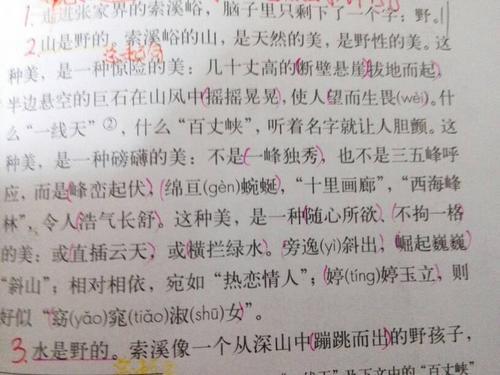 1.走进张家界的索溪峪，脑子里只剩下了一个字：野。
2.山是野的。索溪峪的山，是天然的美，是野性的美。这
种美，是一种惊险的美：几十丈高的断壁悬崖拔地而起，
半边悬空的巨石在山风中摇摇晃晃，使人望而生畏(wèi)。什
么“一线天”②，什么“百丈峡”，听着名字就让人胆颤。这
种美，是一种磅礴的美：不是一峰独秀，也不是三五峰呼
应，而是峰峦起伏，绵亘(gèn)蜿蜒，“十里画廊”，“西海峰
林”，令人浩气长舒。这种美，是一种随心所欲、不拘一格
的美：或直插云天，或横拦绿水。旁逸(yì)斜出，崛起巍巍
“斜山”；相对相依，宛如“热恋情人”；婷(tíng)婷玉立，则
好似“窈(yǎo)窕(tiǎo)淑(shū)女”。
3.水是野的。索溪像一个从深山中蹦跳而出的野孩子，
一线天”及下文中的“百丈峡”